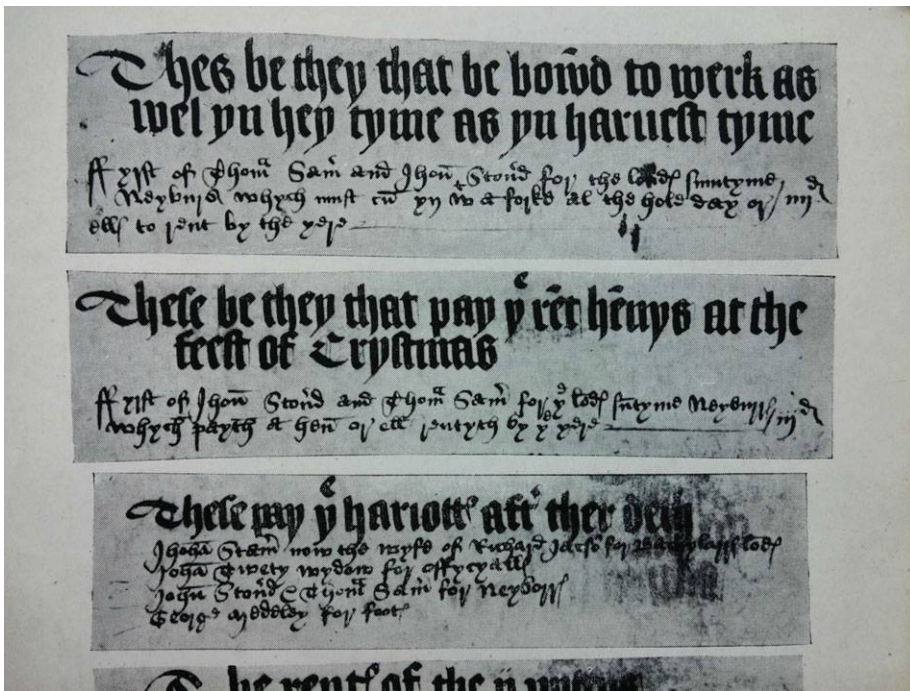 Thes be they that be bow̄d to werk as
wel yn hey tyme as yn haruest tyme
ffyrst of Thom̃ Sam̃ and Jhon̄ Ston̄d for the lordꝭ sumtyme
Neyburꝭ whych must cū yn wt a forke al the hole day or iiijd
ellꝭ to rent by the yere
These be they that pay ye rēt hēnys at the
feest of Crystmas
ffyrst of Jhon̄ Ston̄d and Thom̃ Sam̃ for ye lodꝭ sūtyme Neyburrꝭ iijd
whych payth a hen̄ or ellꝭ rentyth by ye yere
These pay ye hariottꝭ aftr ther deth
Johan̄ Stam̃ now the wyfe of Richard for lodꝭ
Johan̄ Twety wydow for offycyallꝭ
John̄ Ston̄d & Thom̃ Sam̃ for Neyborrꝭ
Georgꝭ Meddeley for footꝭ
he rentꝭ of the